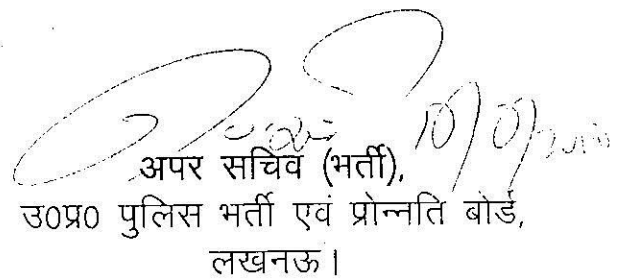 अपर सचिव (भर्ती),
उ0प्र0 पुलिस भर्ती एवं प्रोन्नति बोर्ड,
लखनऊ।